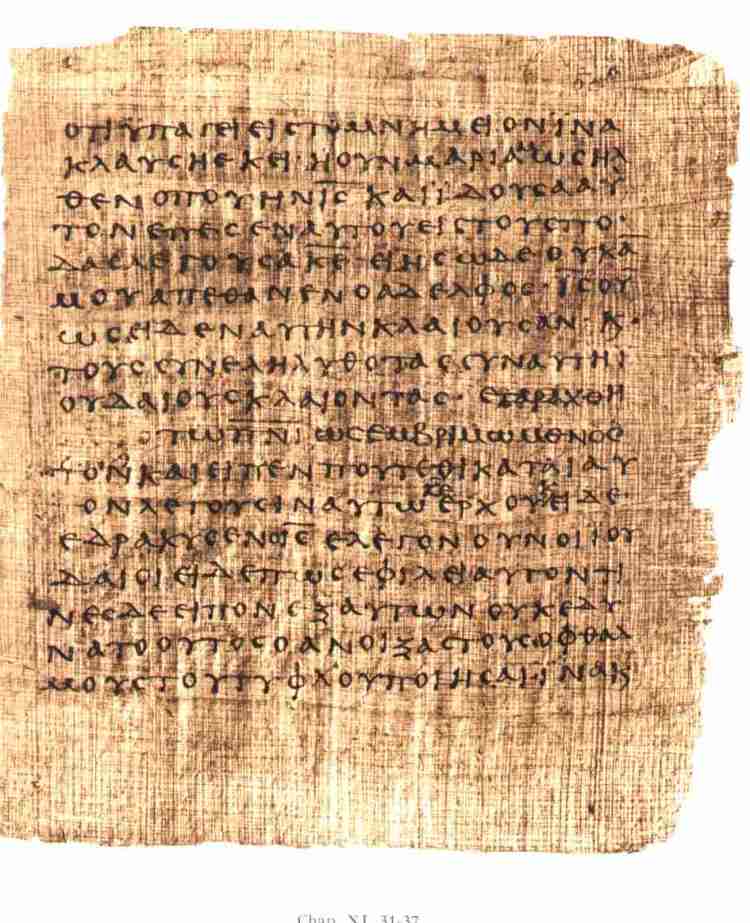 ΟΤΙ ΥΠΑΓΕΙ ΕΙΣ ΤΟ ΜΝΗΜΕΙΟΝ ΙΝΑ
ΚΛΑΥΣΗ ΕΚΕΙ· Η ΟΥΝ ΜΑΡΙΑΜ ΩΣ ΗΛ
ΘΕΝ ΟΠΟΥ ΗΝ ΙΣ ΚΑΙ ΙΔΟΥΣΑ ΑΥ
ΤΟΝ ΕΠΕΣΕΝ ΑΥΤΟΥ ΕΙΣ ΤΟΥΣ ΠΟ·
ΔΑΣ ΛΕΓΟΥΣΑ ΚΕ· ΕΙ ΗΣ ΩΔΕ ΟΥΚ Α
ΜΟΥ ΑΠΕΘΑΝΕΝ Ο ΑΔΕΛΦΟΣ·
ΩΣ ΕΙΔΕΝ ΑΥΤΗΝ ΚΛΑΙΟΥΣΑΝ· Κ·
ΤΟΥΣ ΣΥΝΕΛΗΛΥΘΟΤΑΣ ΣΥΝ ΑΥΤΗ Ι
ΟΥΔΑΙΟΥΣ ΚΛΑΙΟΝΤΑΣ· ΕΤΑΡΑΧΘΗ
ΤΩ ΠΝΙ ΩΣ ΕΜΒΡΙΜΩΜΕΝΟΣ
ΚΑΙ ΕΙΠΕΝ ΠΟΥ ΤΕΘΙΚΑΤΑΙ ΑΥ
ΟΝ ΛΕΓΟΥΣΙΝ ΑΥΤΩ ΕΡΧΟΥ ΙΔΕ·
ΕΔΡΑΚΥΣΕΝ Ο ΙΣ ΕΛΕΓΟΝ ΟΥΝ ΟΙ ΙΟΥ
ΔΑΙΟΙ ΕΙΔΕ ΠΩΣ ΕΦΙΛΕΙ ΑΥΤΟΝ ΤΙ
ΝΕΣ ΔΕ ΕΙΠΟΝ ΕΞ ΑΥΤΩΝ ΟΥΚ ΕΔΥ
ΝΑΤΟ ΟΥΤΟΣ Ο ΑΝΟΙΞΑΣ ΤΟΥΣ ΟΦΘΑΛ
ΜΟΥΣ ΤΟΥ ΤΥΦΛΟΥ ΠΟΙΗΣΑΙ· ΙΝΑ Κ
Chap. XI, 31-37